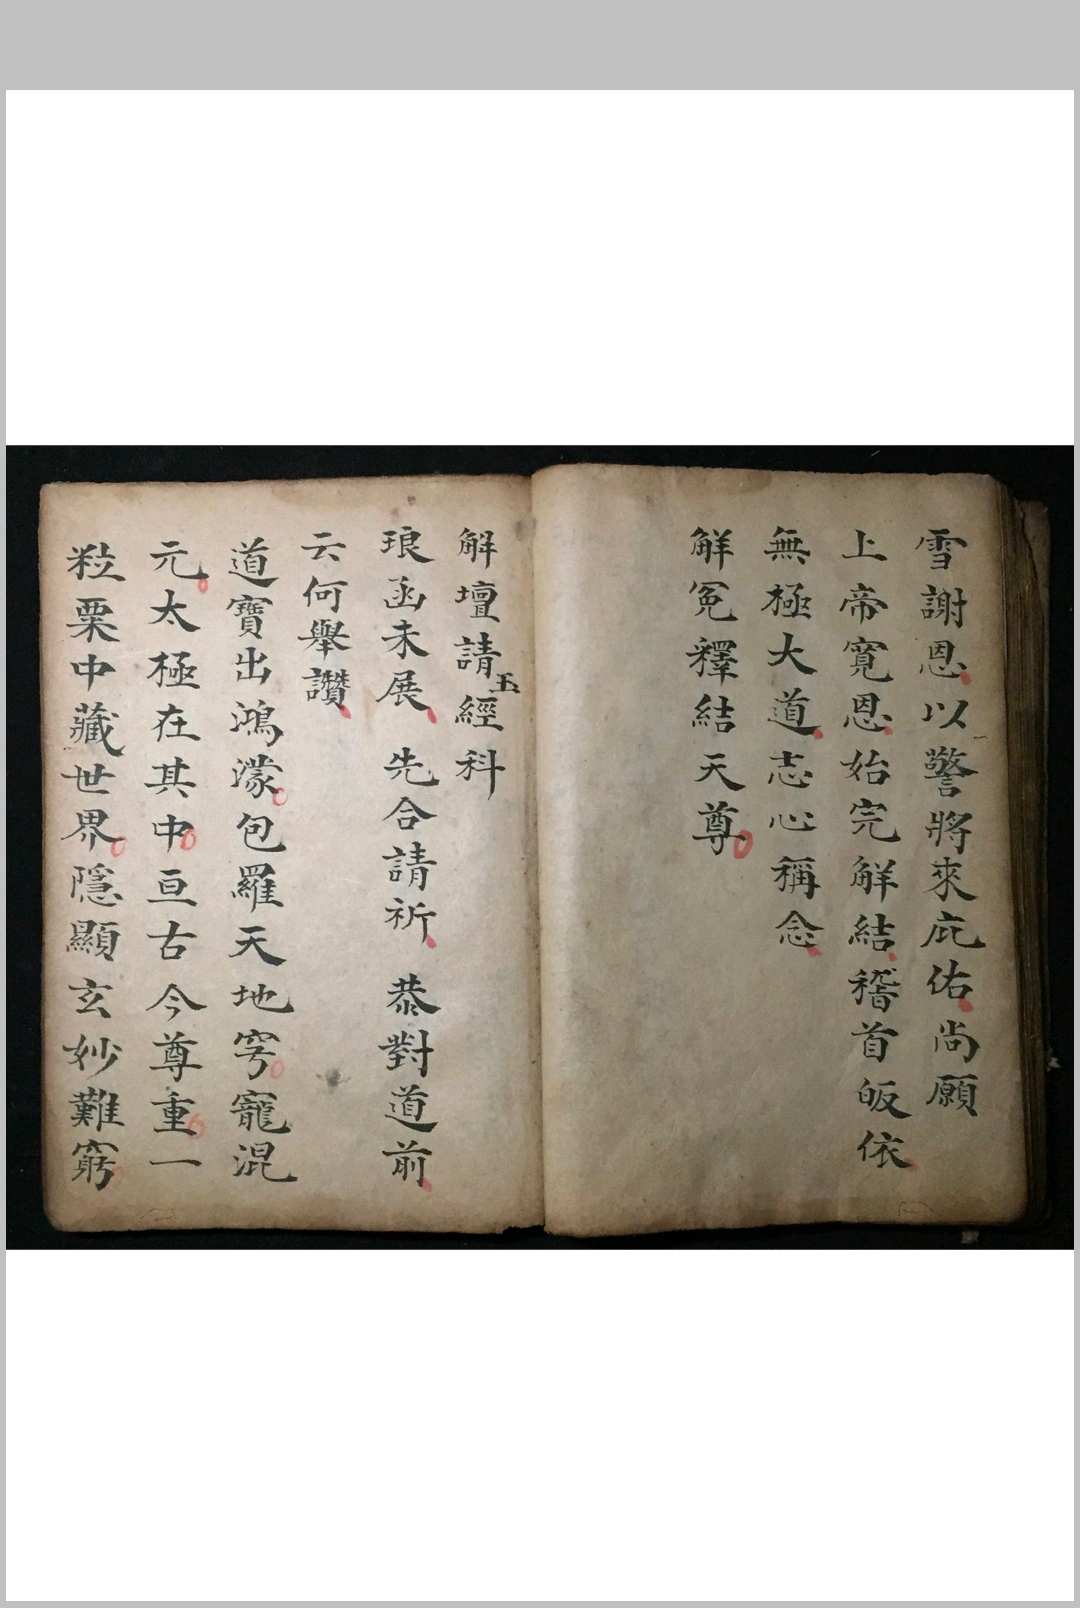 雪謝恩以警將來庇佑尚願
上帝寬恩始完解結稽首皈依
無極大道志心稱念
解冤釋結天尊
解壇請玉經科
琅函未展先合請祈恭對道前
云何舉讚
道寶出鴻濛包羅天地穹窿混
元太極在其中亘古今尊重一
粒粟中藏世界隱顯玄妙難窮